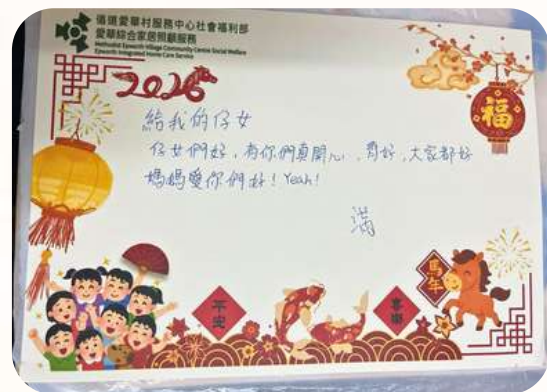 循道愛華村服務中心社會福利部
愛華綜合家居照顧服務
Methodist Epworth Village Community Centre Social Welfare
Epworth Integrated Home Care Service
2026
福
給我的仔女
仔女們好，有你們真開心，
大家都好
媽媽愛你們
！Yeah!
滿
馬年
平安
喜樂